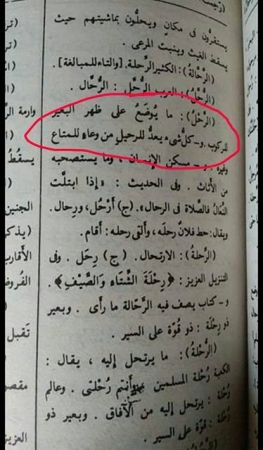 يستقرّون فى مكان ويحلّون بماشيتهم حيث
يسقط الغيث وينبت المرعى .
(الرَّحّالةُ) : الكثيرالرحلة. [والتاء للمبالغة].
(الرُّحَّلُ) : العرب الرُّحَّل : الرُّحَّال .
(الرَّحْلُ) : ما يُوضَعُ على ظهر البعير
للركوب . و- كلُّ شىء يعدُّ للرحيل من وعاء للمتاع
وغيره . و - مسكن الإنسان ، وما يستصحبه
من الأثاث . وفى الحديث : « إذا ابتلَّت
النِّعالُ فالصَّلاة فى الرحال». (ج) أَرْحُل ، ورِحال .
ويقال : حطَّ فلان رحلَه ، وألقى رحله : أقام .
(الرِّحْلَةُ) : الارتحال . (ج) رِحَل . وفى
التنزيل العزيز : ﴿ رِحْلَةَ الشِّتَاءِ وَالصَّيْفِ ﴾ .
و- كتاب يصف فيه الرَّحّالة ما رأى . وبعير
ذو رِحلة : ذو قُوّة على السير .
(الرُّحْلَةُ) : ما يرتحل إليه ، يقال :
الكعبة رُحْلة المسلمين وأنتم رُحْلتى . وعالم
رُحْلة : يرتحل إليه من الآفاق . وبعير ذو
رُحْلة : ذو قُوّة على السير .
وارمة
يسقُطُ
الجنين
(يذكر
الأقارب
الفُروض
تَقبل
مقصو
العزيز